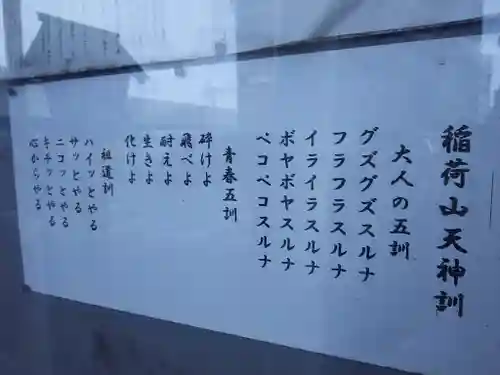 稲荷山天神訓
大人の五訓
グズグズスルナ
フラフラスルナ
イライラスルナ
ボヤボヤスルナ
ペコペコスルナ
青春五訓
砕けよ
飛べよ
耐えよ
生きよ
化けよ
祖道訓
ハイッとやる
サッとやる
ニコッとやる
キチッとやる
心からやる